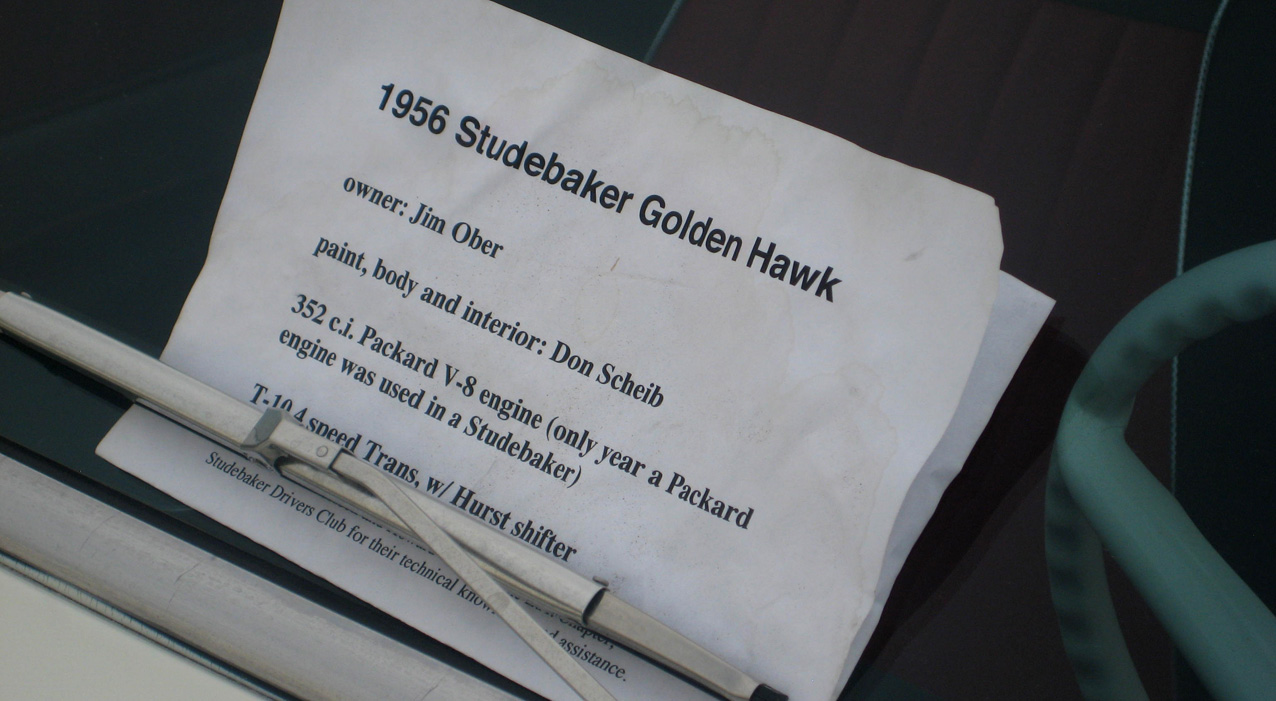 1956 Studebaker Golden Hawk
owner: Jim Ober
paint, body and interior: Don Scheib
352 c.i. Packard V-8 engine (only year a Packard
engine was used in a Studebaker)
T-10 4 speed Trans, w/ Hurst shifter
Chapter,
Studebaker Drivers Club for their technical assistance.